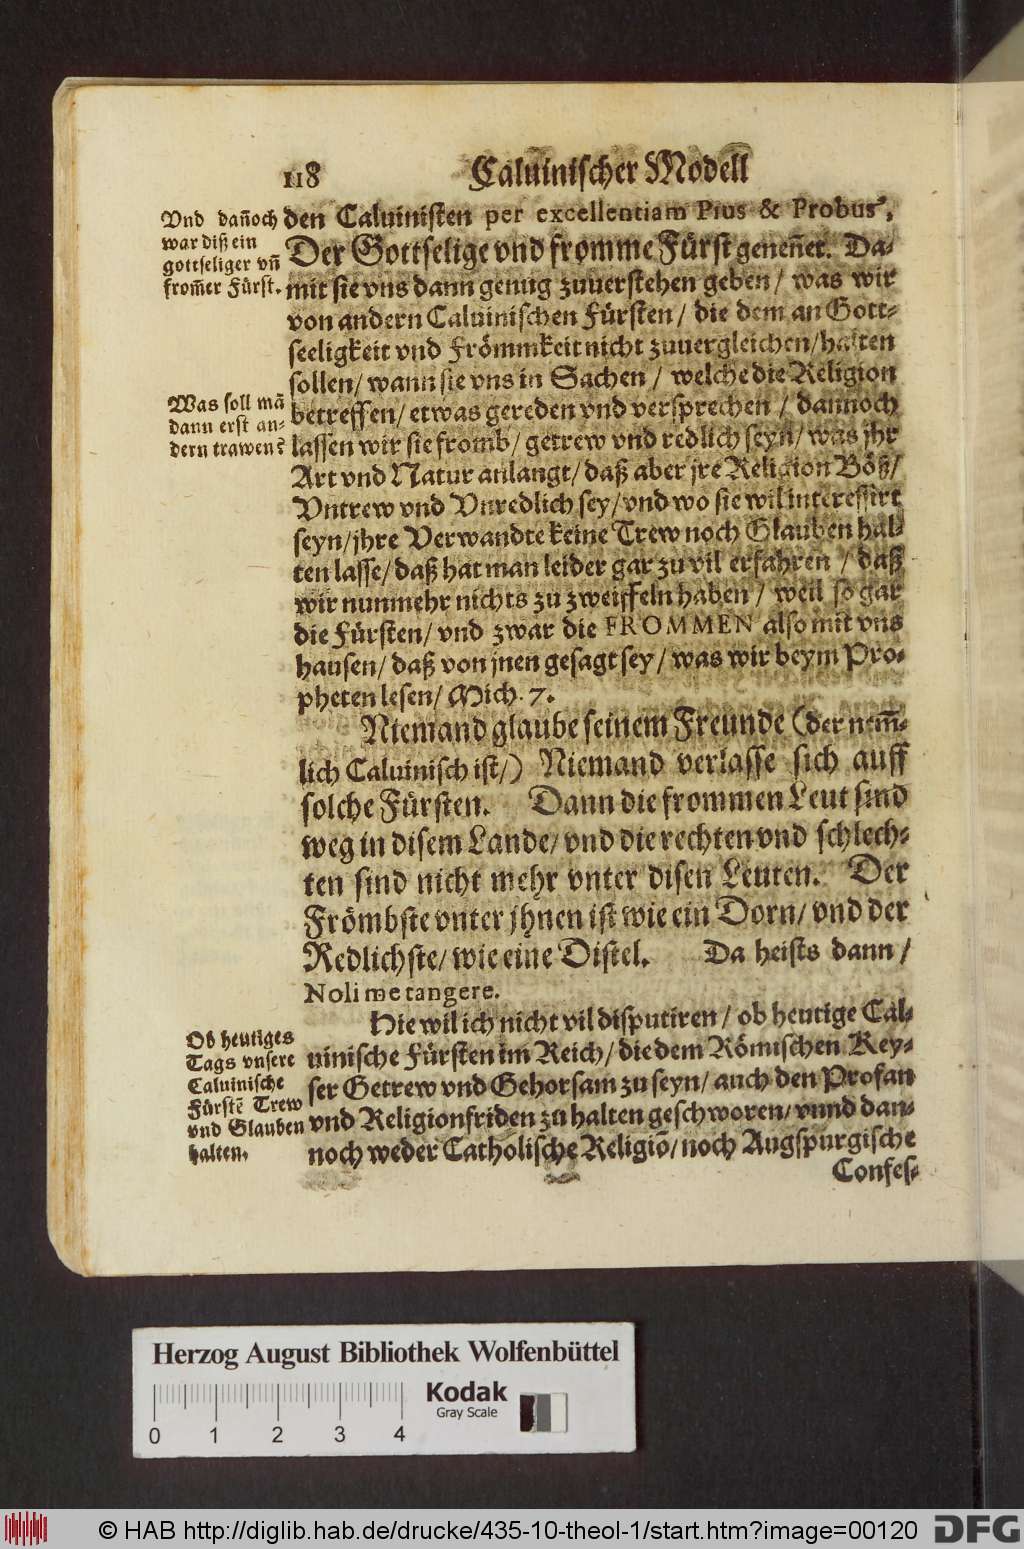 118 Caluinischer Modell
Vnd dan̄och
war diß ein
gottseliger vn̄
from̄er Fürst.
den Caluinisten per excellentiam Pius & Probus,
Der Gottselige vnd fromme Fürst genen̄et. Da-
mit sie vns dann genug zuuerstehen geben / was wir
von andern Caluinischen Fürsten / die dem an Gott-
seeligkeit vnd Frömmkeit nicht zuuergleichen/halten
sollen/ wann sie vns in Sachen / welche die Religion
Was soll mā
dann erst an-
dern trawen?
betreffen/ etwas gereden vnd versprechen / dannoch
lassen wir sie fromb/ getrew vnd redlich seyn/ was jhr
Art vnd Natur anlangt/ daß aber jre Religion Böß/
Vntrew vnd Vnredlich sey/ vnd wo sie wil interessirt
seyn/jhre Verwandte keine Trew noch Glauben hal-
ten lasse/ daß hat man leider gar zu vil erfahren / daß
wir nunmehr nichts zu zweiffeln haben / weil so gar
die Fürsten/ vnd zwar die FROMMEN also mit vns
hausen/ daß von jnen gesagt sey / was wir beym Pro-
pheten lesen/ Mich. 7.
Niemand glaube seinem Freunde (der nem̄-
lich Caluinisch ist/) Niemand verlasse sich auff
solche Fürsten. Dann die frommen Leut sind
weg in disem Lande/ vnd die rechten vnd schlech-
ten sind nicht mehr vnter disen Leuten. Der
Frömbste vnter jhnen ist wie ein Dorn/ vnd der
Redlichste/ wie eine Distel. Da heists dann /
Noli me tangere.
Hie wil ich nicht vil disputiren / ob heutige Cal-
Ob heutiges
Tags vnsere
Caluinische
Fürstē Trew
vnd Glauben
halten.
uinische Fürsten im Reich/ die dem Römischen Key-
ser Getrew vnd Gehorsam zu seyn/ auch den Profan
vnd Religionfriden zu halten geschworen/ vnnd dan-
noch weder Catholische Religiō/ noch Augspurgische
Confes-
Herzog August Bibliothek Wolfenbüttel
Kodak
Gray Scale
0 1 2 3 4
© HAB http://diglib.hab.de/drucke/435-10-theol-1/start.htm?image=00120
DFG